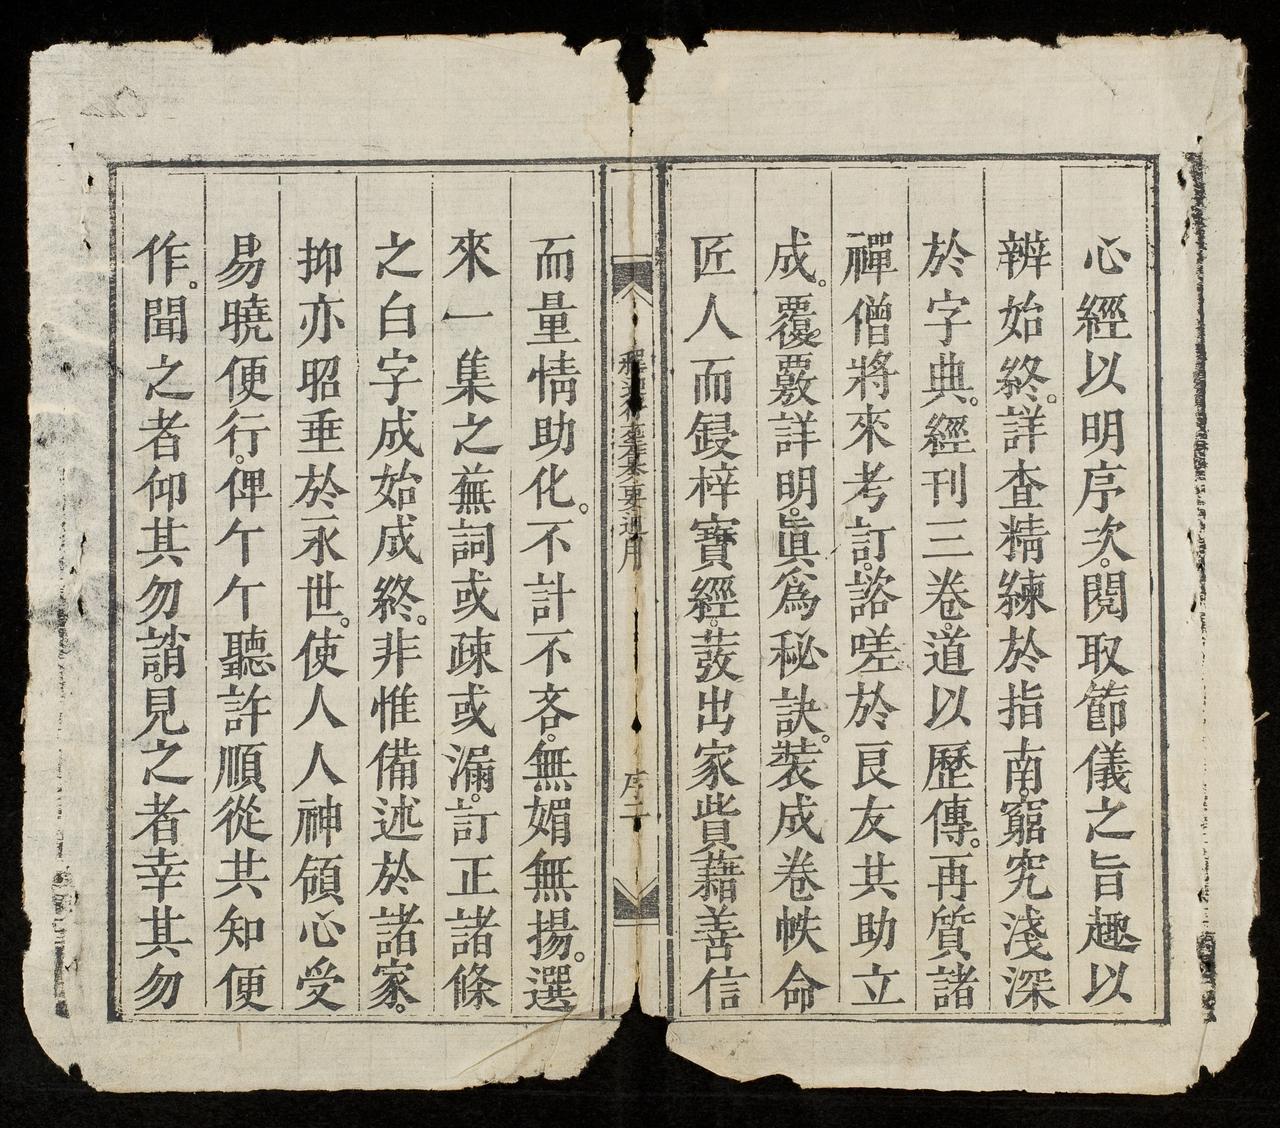 心經以明序次。閱取節儀之旨趣以
辨始終。詳查精練於指南。窮究淺深
於字典。經刊三卷。道以歷傳。再質諸
禪僧將來考訂。諮嗟於良友共助立
成。覆覈詳明。眞為秘訣。裝成卷帙命
匠人而鋟梓寶經。荍出家貲藉善信
序二
而量情助化。不計不吝。無媚無揚。選
來一集之蕪詞或疎或漏。訂正諸條
之白字成始成終。非惟備述於諸家。
抑亦昭垂於永世。使人人神領心受
易曉便行。俾個個聽許順從共知便
作。聞之者仰其勿誚。見之者幸其勿